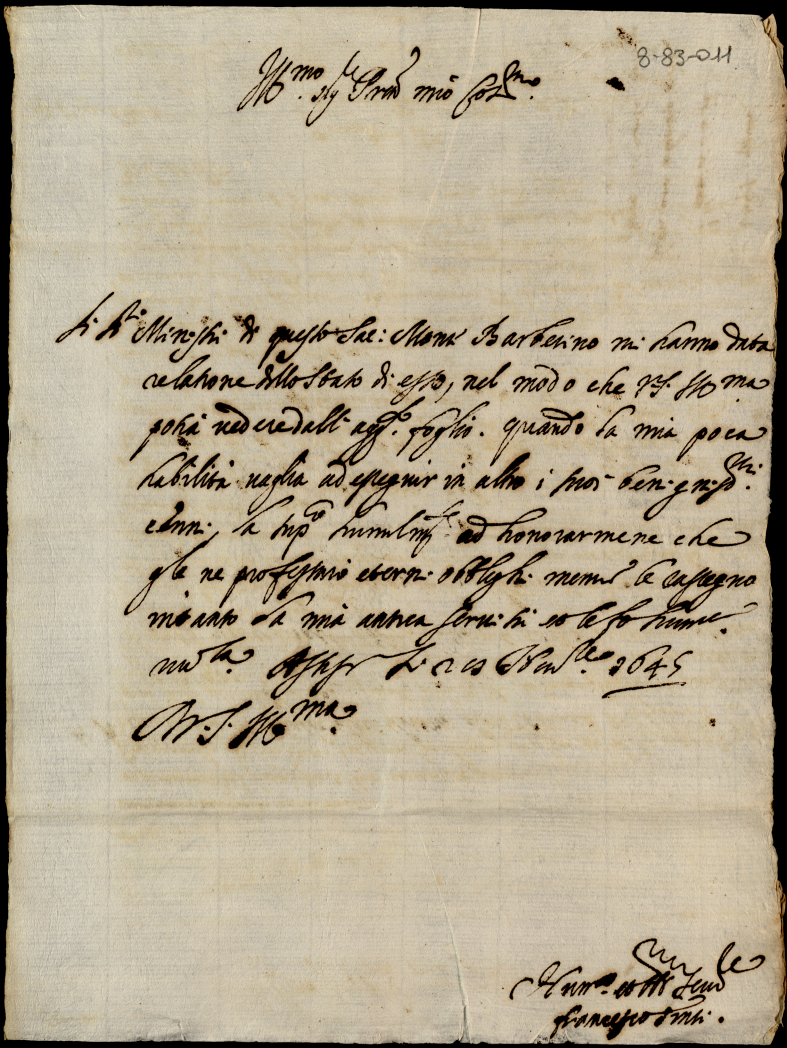 8-83-011
Ill.mo Sig.re Pron mio Col.mo
Li Ministri di questo Sac: Monte Barberino mi hanno data
relatione dello stato di esso, nel modo che V.S. Ill.ma
potrà vedere dall' agg.to foglio. quando la mia poca
habilità vaglia ad esseguir in altro i suoi benigniss.mi
cenni, la sup.co humiliss.te ad honorarmene che
gle ne professarò eterni oblighi. mentre le rassegno
intanto la mia antica servitù et le fo hum.e
riv.za. li 20 1645
Di V.S. Ill.ma
Hum.o et Ser.re
Francesco